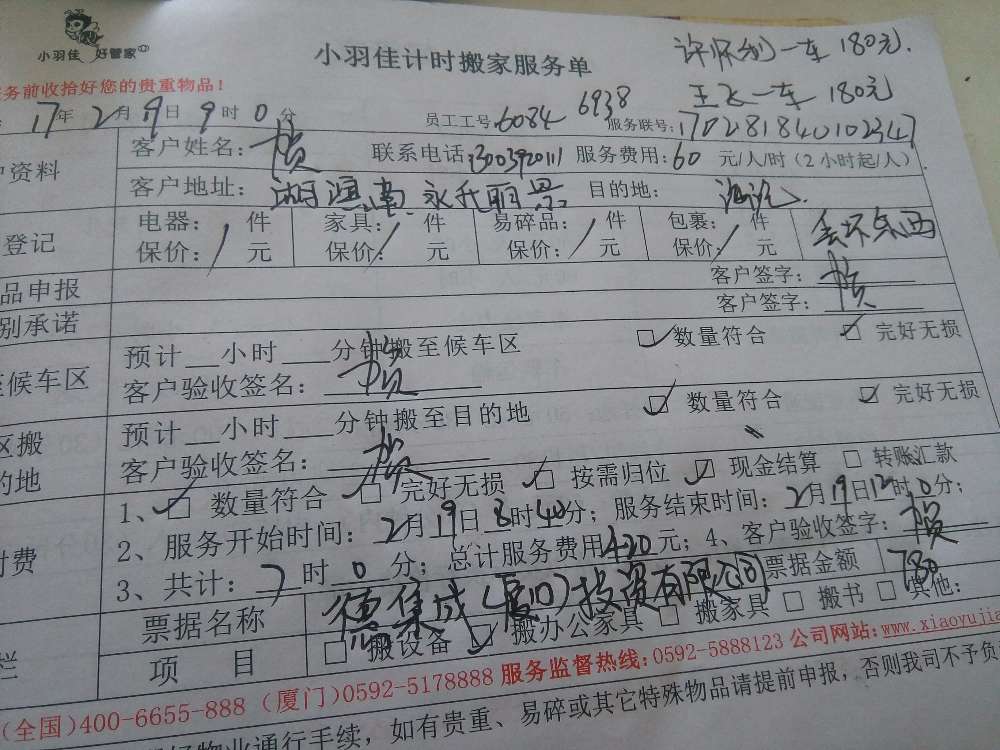 小羽佳 好管家
小羽佳计时搬家服务单
一车 180元.
王飞一车 180元
务前收拾好您的贵重物品!
17年2月19日9时0分
员工工号:6084 6938
服务联号:170281840102347
户资料
客户姓名:
联系电话:
服务费用:60 元/人/时(2小时起/人)
客户地址: 永升丽景
目的地:
登记
电器: / 件
家具: / 件
易碎品: / 件
包裹: / 件
保价: 元
保价: 元
保价: 元
保价: 元
品申报
客户签字:
别承诺
客户签字:
候车区
预计___小时___分钟搬至候车区
数量符合
完好无损
客户验收签名:
区搬
的地
预计___小时___分钟搬至目的地
数量符合
完好无损
客户验收签名:
付费
1、数量符合 完好无损 按需归位 现金结算 转账汇款
2、服务开始时间:2月19日8时40分;服务结束时间:2月19日12时0分;
3、共计:7时0分;总计服务费用420元;4、客户验收签字:
票据名称
德集成(厦门)投资有限公司
票据金额
780
栏
项 目
搬设备 搬办公家具 搬家具 搬书 其他:
(全国)400-6655-888 (厦门)0592-5178888 服务监督热线:0592-5888123 公司网站:www.xiaoyujia
物业通行手续,如有贵重、易碎或其它特殊物品请提前申报,否则我司不予负